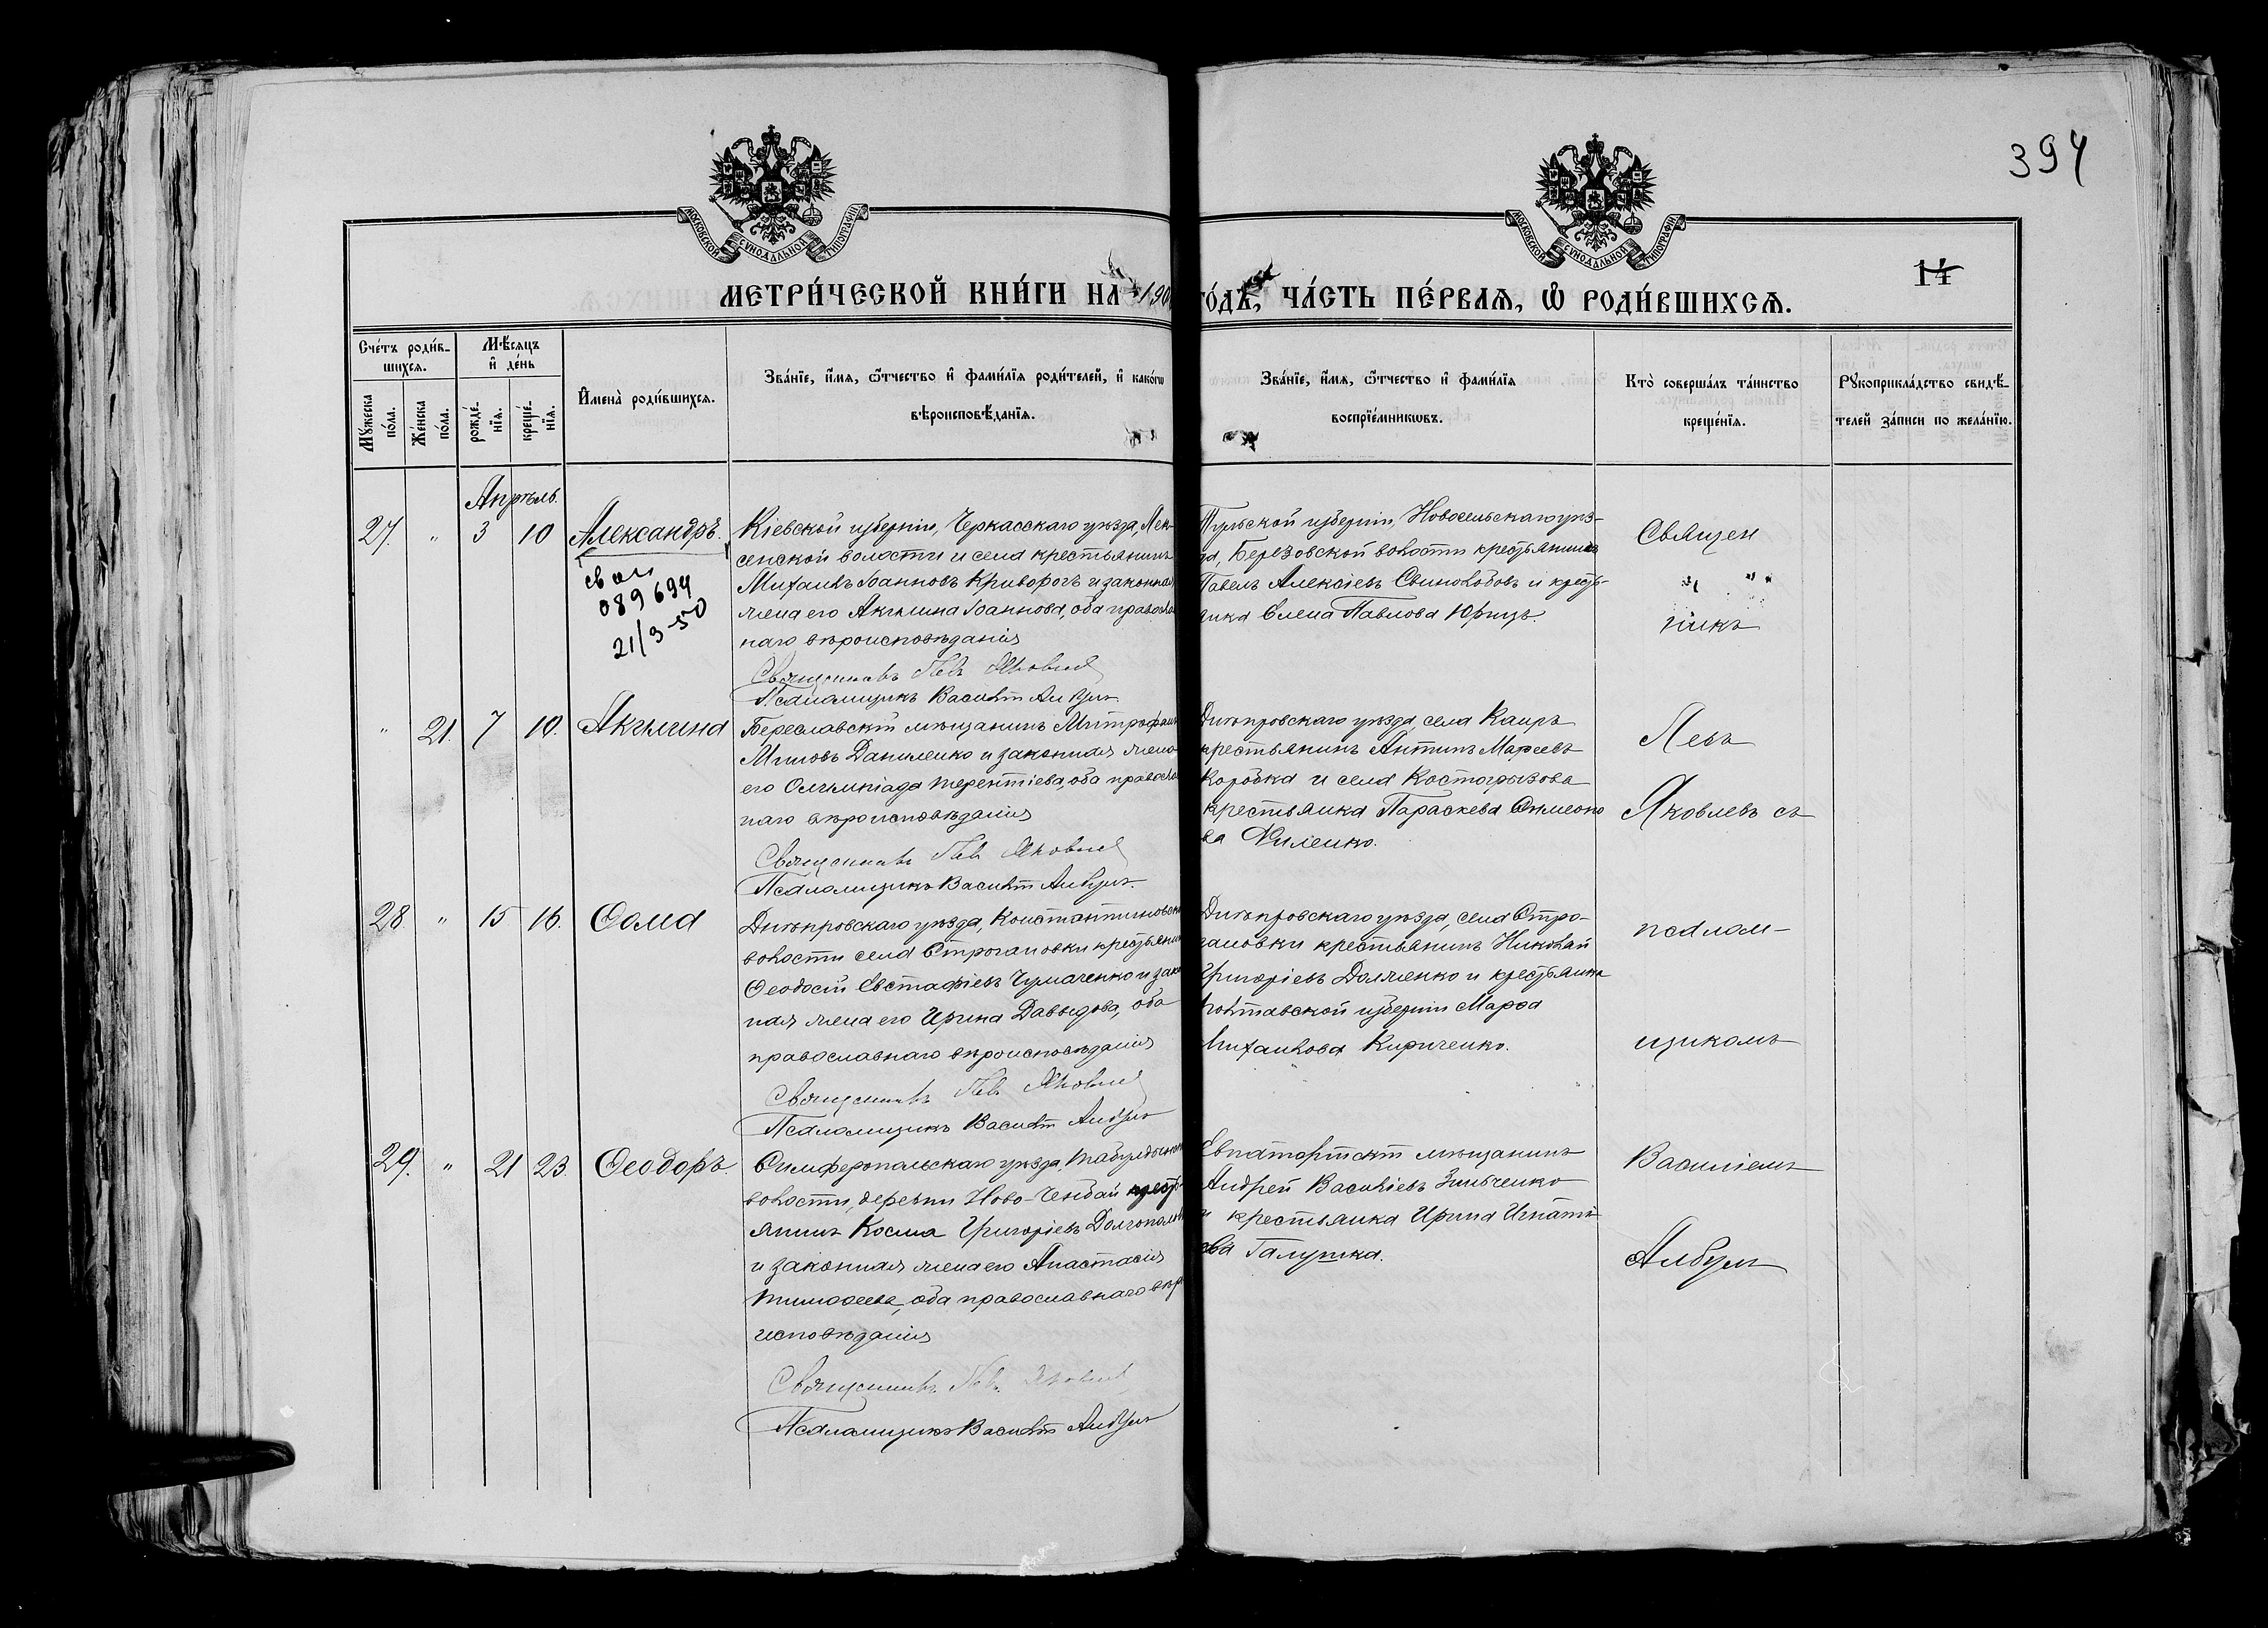 394
МОСКОВСКОЙ СѴНОДАЛЬНОЙ ТИПОГРАФІИ
МОСКОВСКОЙ СѴНОДАЛЬНОЙ ТИПОГРАФІИ
14
МЕТРИ́ЧЕСКОЙ КНИ́ГИ НА 190
ГО́ДЪ, ЧА́СТЬ ПЕ́РВАѦ, Ѿ РОДИ́ВШИХСѦ.
Сче́тъ роди́в-
шихсѧ.
Мꙋ́жеска по́ла.
Же́нска по́ла.
Мѣ́сѧцъ
и҆ де́нь
рожде́-
нїѧ.
креще́-
нїѧ.
И҆мена̀ роди́вшихсѧ.
Зва́нїе, и҆́мѧ, ѻ҆́тчество и҆ фами́лїѧ роди́телей, и҆ како́гѡ
вѣроисповѣ́данїѧ.
Зва́нїе, и҆́мѧ, ѻ҆́тчество и҆ фами́лїѧ
воспрїе́мникѡвъ.
Кто̀ соверша́лъ та́инство
креще́нїѧ.
Рꙋкоприкла́дство свидѣ́-
телей за́писи по жела́нїю.
Апрѣль.
27. " 3 10 Александръ.
089694
21/3-50
Кіевской губерніи, Черкасскаго уѣзда,
сенской волости и села крестьянинъ
Михаилъ Іоанновъ Криворогъ и законная
жена его Акилина Іоаннова, оба православ
наго вѣроисповѣданія
Священникъ Левъ Яковлев
Псаломщикъ Василій Албул
Тульской губерніи, Новосельскаго уѣз-
да, Березовской волости крестьянинъ
Павелъ Алексіевъ Свинолобовъ и кресть-
янка Елена Павлова Юрицъ.
Священ
" "
никъ
" 21. 7 10. Акилина
Береславскій мѣщанинъ Митрофанъ
Даниленко и законная жена
его Олимпіада Терентіева, оба православ
наго вѣроисповѣданія
Священникъ Левъ Яковлев
Псаломщикъ Василій Албулъ.
Днѣпровскаго уѣзда, села Каиръ
крестьянинъ Антипъ
Коробка и села Костогрызова
крестьянка Параскева Симеоно
ва Филенко.
Левъ
Яковлевъ съ
28. " 15 16. Ѳома
Днѣпровскаго уѣзда, Константиновской
волости села Строгановки крестьянинъ
Ѳеодосій Евстафіевъ Чумаченко и закон
ная жена его Ирина Давыдова, оба
православнаго вѣроисповѣданія
Священникъ Левъ Яковлев
Псаломщикъ Василій Албулъ
Днѣпровскаго уѣзда, села Стро-
гановки крестьянинъ Николай
Григоріевъ Долженко и крестьянка
Полтавской губерніи Марѳа
Михаилова Кириченко.
псалом-
щикомъ
29. " 21 23. Ѳеодоръ.
Симферопольскаго уѣзда,
волости, деревни Ново- крестъ
янинъ Косма Григоріевъ
и законная жена его Анастасія
Тимоѳеева, оба православнаго вѣро
исповѣданія
Священникъ Левъ Яковлев
Псаломщикъ Василій Албулъ
Евпаторійскій мѣщанинъ
Андрей Василіевъ Зинченко
и крестьянка Ирина Игнаті
ева Галушка.
Василіемъ
Албулъ